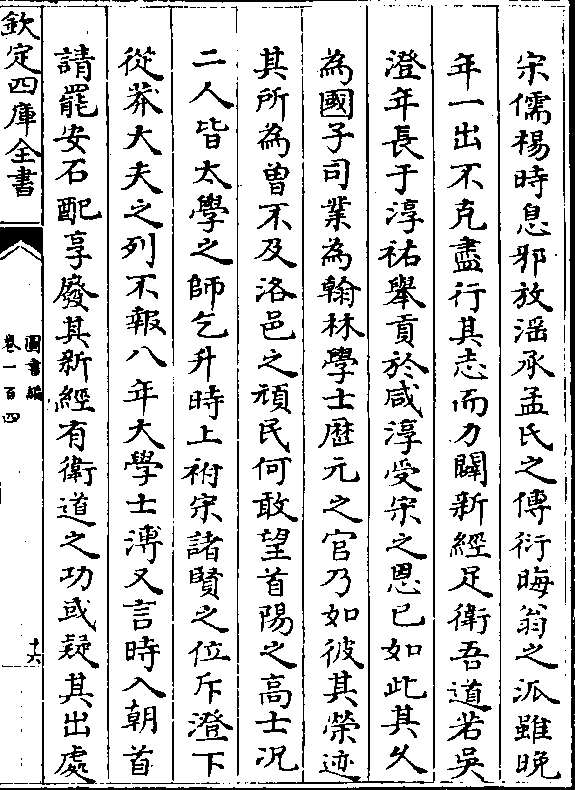 宋儒楊時息邪放淫承孟氏之傳衍晦翁之派雖晚
年一出不克盡行其志而力闢新經足衛吾道若吳
澄年長于淳祐舉貢於咸淳受宋之恩已如此其久
為國子司業為翰林學士歴元之官乃如彼其榮迹
其所為曾不及洛邑之頑民何敢望首陽之高士况
二人皆太學之師乞升時上祔宋諸賢之位斥澄下
從莽大夫之列不報八年大學士溥又言時入朝首
請罷安石配享廢其新經有衛道之功或疑其出處
欽定四庫全書
圖書編
卷一百四
十六